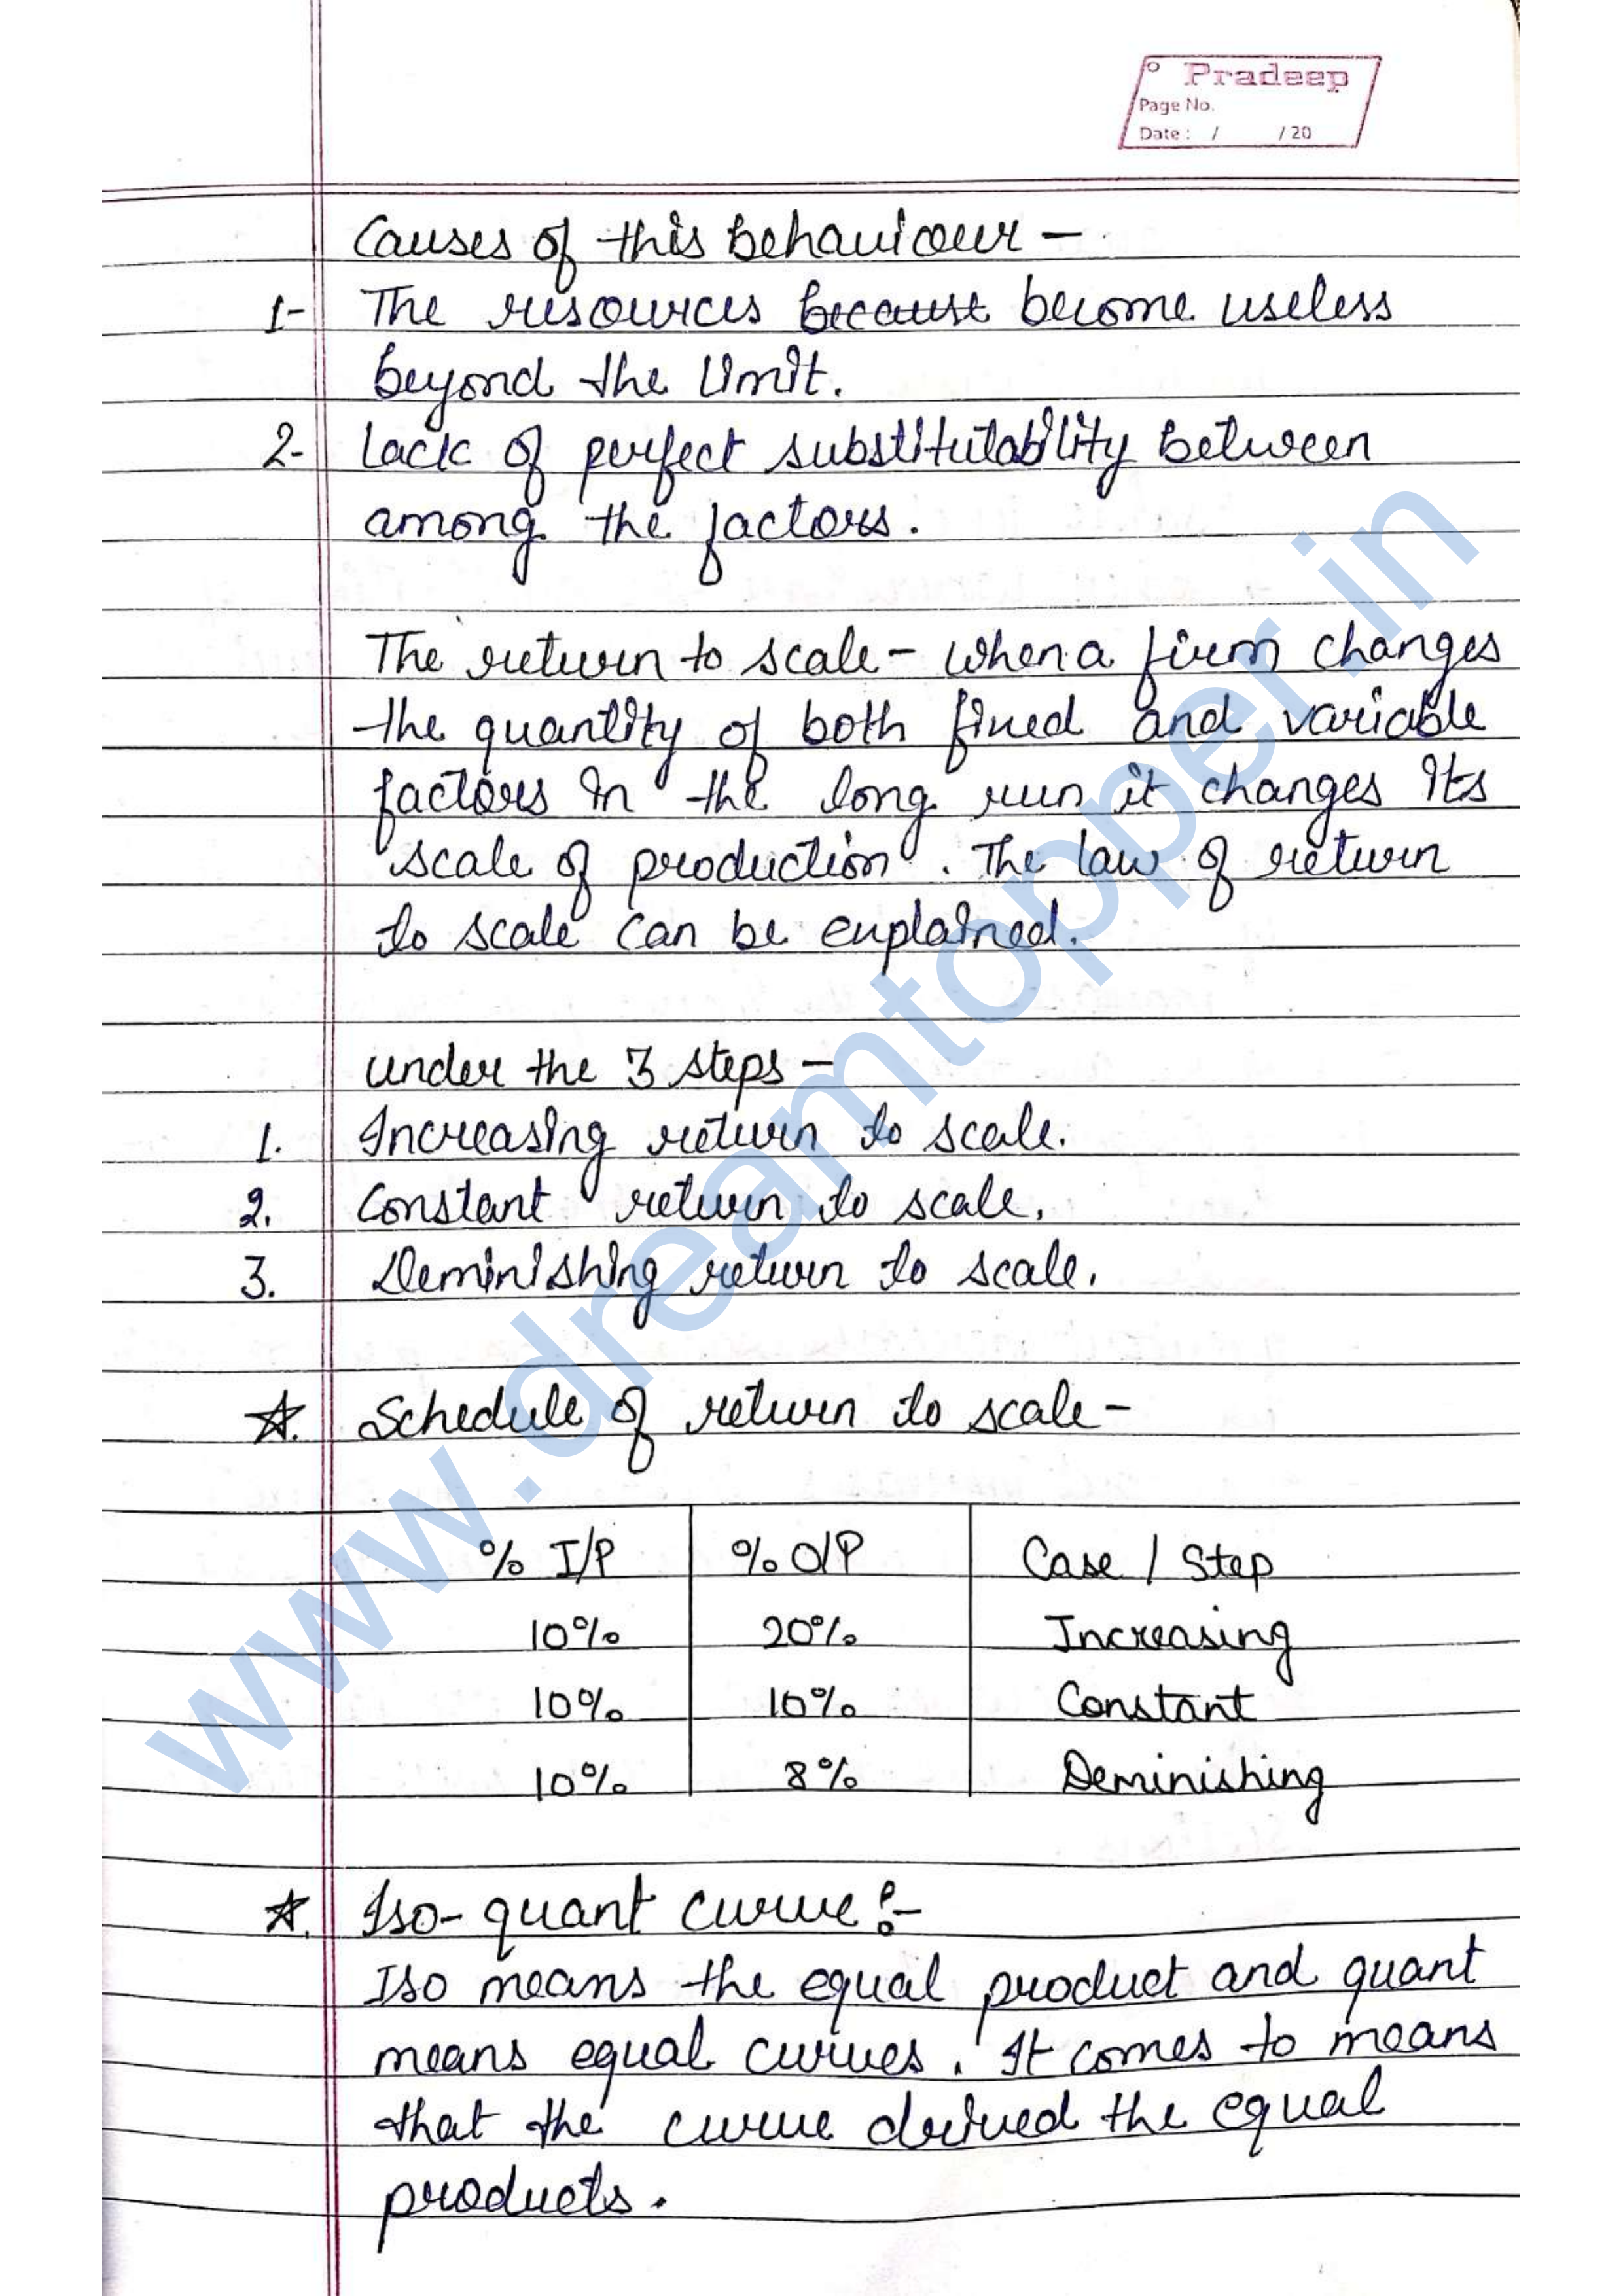 Pradeep
Page No.
Date : / / 20
Causes of this behaviour -
1- The resources because become useless
beyond the limit.
2- Lack of perfect substitutability between
among the factors.
The return to scale - when a firm changes
the quantity of both fined and variable
factors in the long run it changes its
scale of production. The law of return
to scale can be enplained.
under the 3 steps -
1. Increasing return to scale.
2. Constant return to scale.
3. Deminishing return to scale.
☆. Schedule of return to scale -
% I/P % O/P Case / Step
10% 20% Increasing
10% 10% Constant
10% 8% Deminishing
☆. Iso-quant curve :-
Iso means the equal product and quant
means equal curves. It comes to means
that the curve derived the equal
products.
www.dreamtopper.in